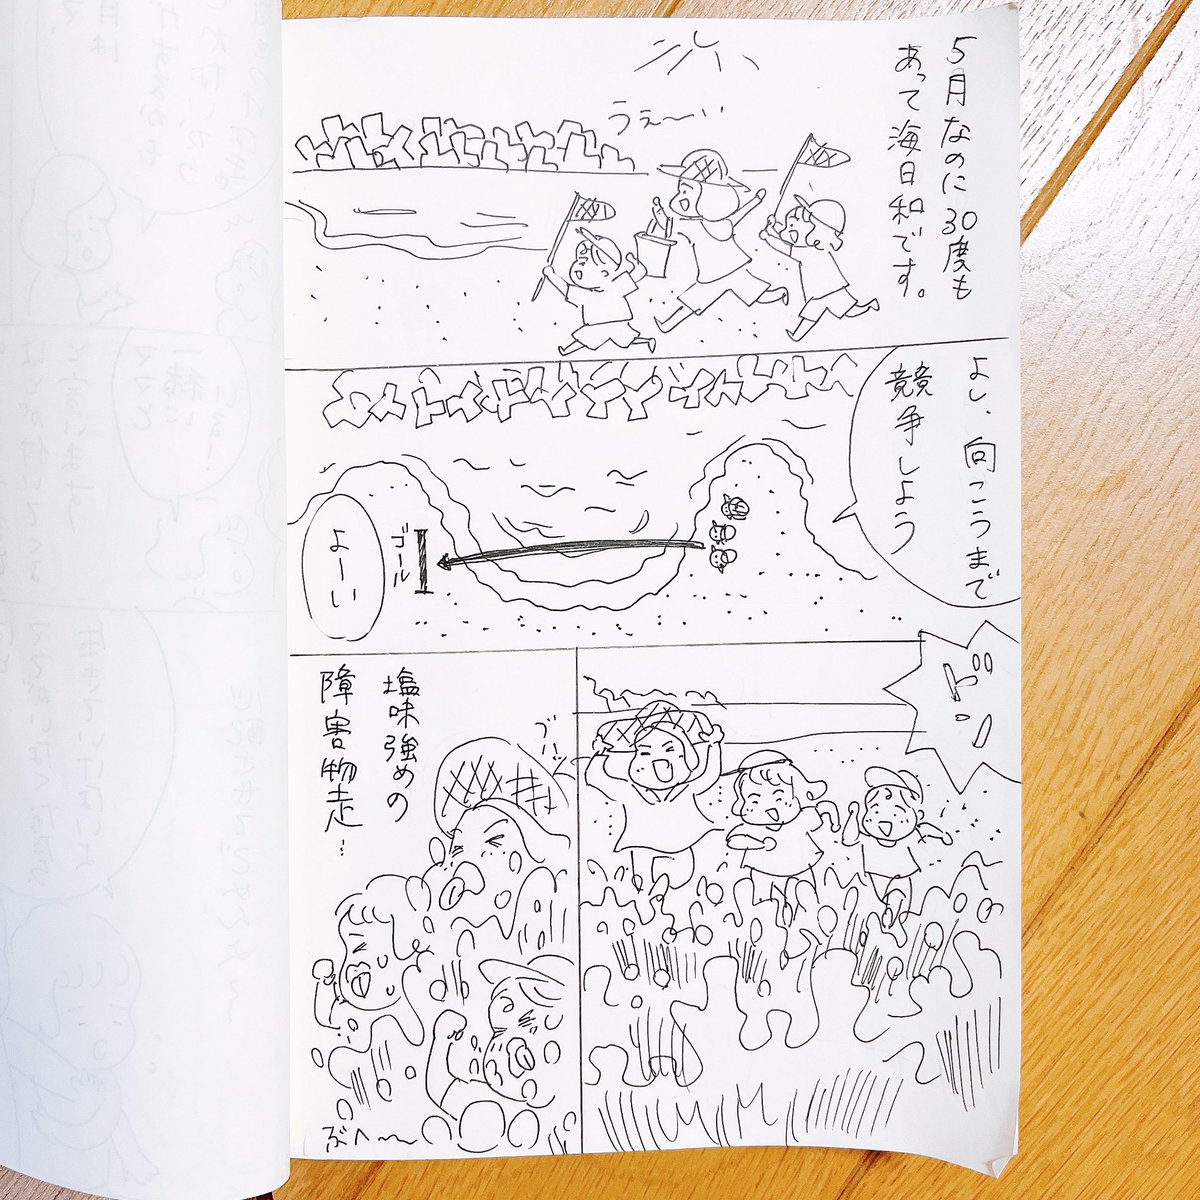 5月なのに30度も
あって海日和です。
うぇ〜い
よし、向こうまで
競争しよう
ゴール
よーい
ドン
塩味強めの
障害物走…
ぶへ〜